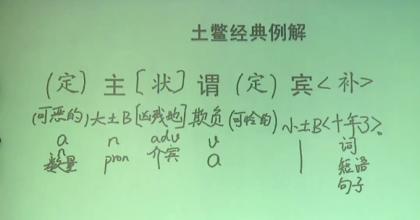 土鳖经典例解
(定) 主 [状] 谓 (定) 宾 <补>
(可恶的) 大土B [凶残地] 欺负 (可怜的) 小土B <十年了>。
a n adv v 词
数量 pron 介宾 a 短语
句子